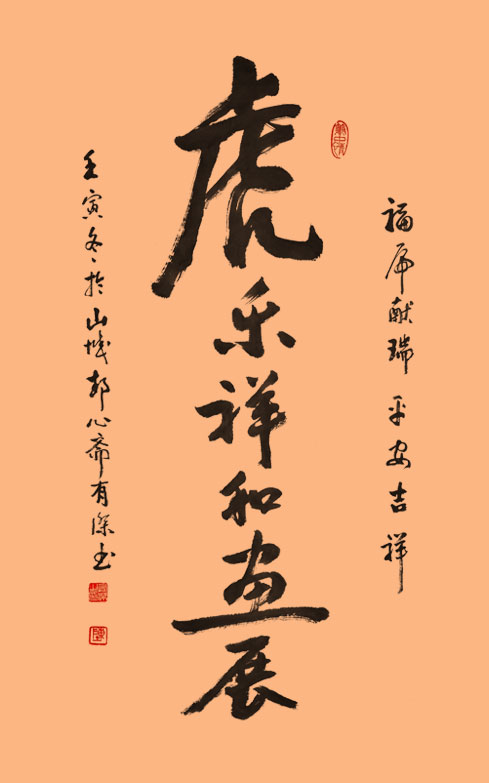 福虎献瑞 平安吉祥
虎乐祥和画展
壬寅冬於山城郡心斋有深书